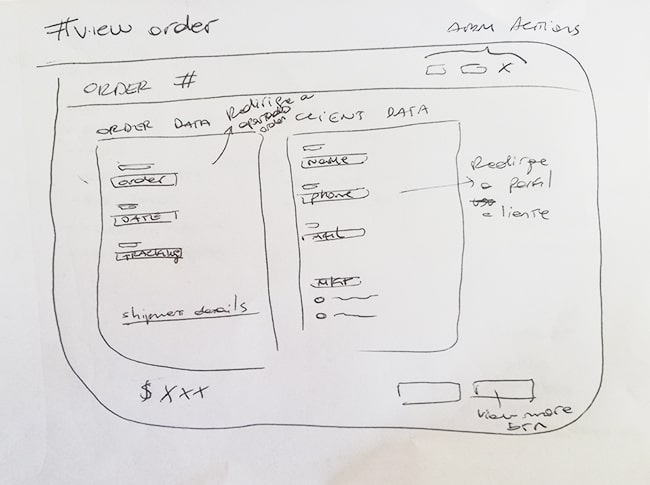 #view order
ADMIN ACTIONS
X
ORDER #
ORDER DATA
Redirige a
apartado
order
CLIENT DATA
order
DATE
TRACKING
shipment details
NAME
phone
MAIL
MKT
Redirige
a perfil
cliente
$ XXX
view more
BTN